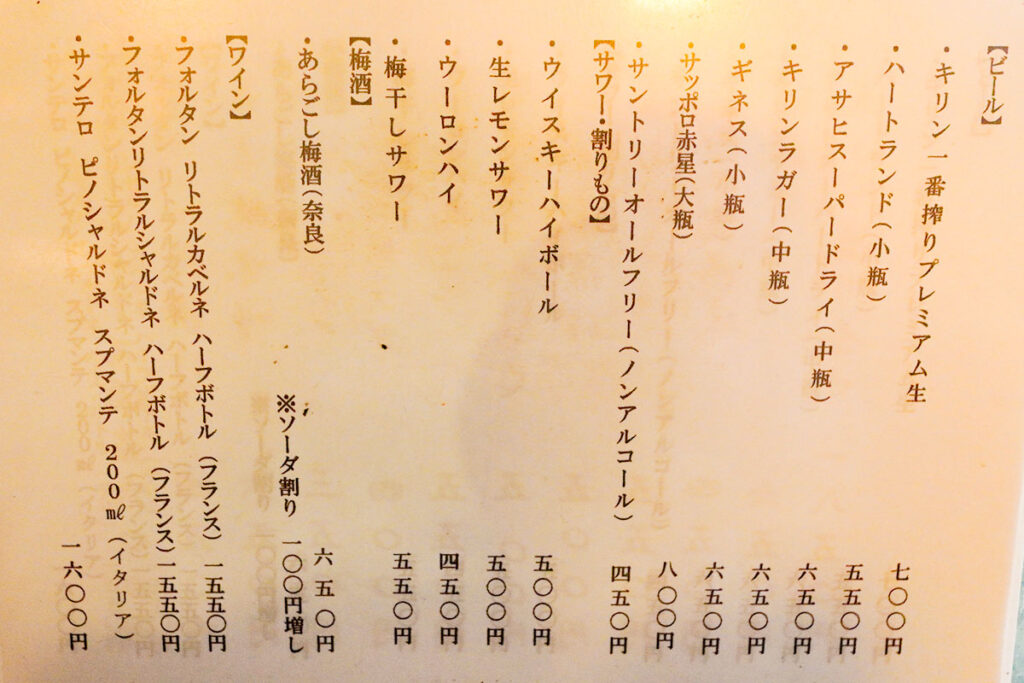 【ビール】
・キリン一番搾りプレミアム生 七〇〇円
・ハートランド（小瓶） 五五〇円
・アサヒスーパードライ（中瓶） 六五〇円
・キリンラガー（中瓶） 六五〇円
・ギネス（小瓶） 六五〇円
・サッポロ赤星（大瓶） 八〇〇円
・サントリーオールフリー（ノンアルコール） 四五〇円
【サワー・割りもの】
・ウイスキーハイボール 五〇〇円
・生レモンサワー 五〇〇円
・ウーロンハイ 四五〇円
・梅干しサワー 五五〇円
【梅酒】
・あらごし梅酒（奈良） 六五〇円
※ソーダ割り 一〇〇円増し
【ワイン】
・フォルタン リトラルカベルネ ハーフボトル （フランス） 一五五〇円
・フォルタンリトラルシャルドネ ハーフボトル （フランス） 一五五〇円
・サンテロ ピノシャルドネ スプマンテ 200㎖（イタリア）
一六〇〇円